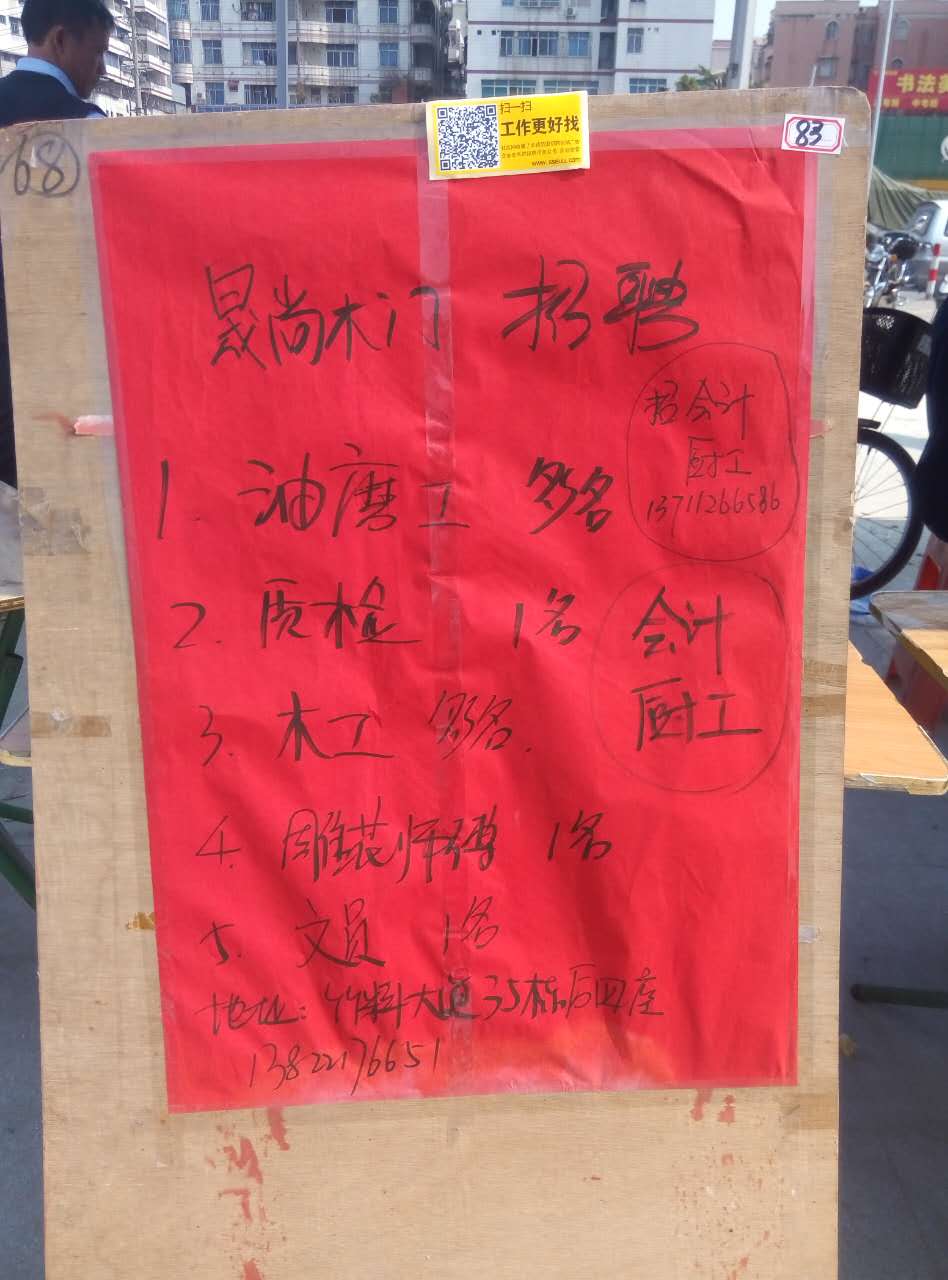 书法美
中专部
扫一扫
工作更好找
68
83
晟尚木门 招聘
招会计
厨工
13711266586
1. 油磨工 多名
2. 质检 1名
会计
厨工
3. 木工 多名.
4. 雕花师傅 1名
5. 文员 1名
地址: 竹料大道35栋后四座
13822176651